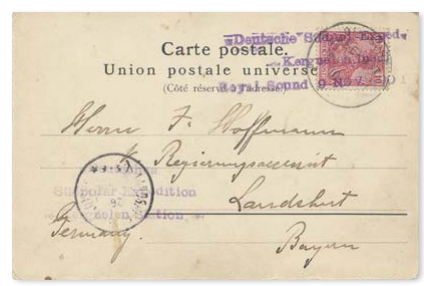 =Deutsche Südpol-Exped.
Carte postale.
Kerguelen
Union postale universe
(Côté réservé à l'adresse)
Royal Sound 9 Nov.
Herrn F. Hoffmann
k. Regierungsaccessist
Deutsche
Südpolar-Expedition
Landshut
Kerguelen-Station
Germany.
Bayern